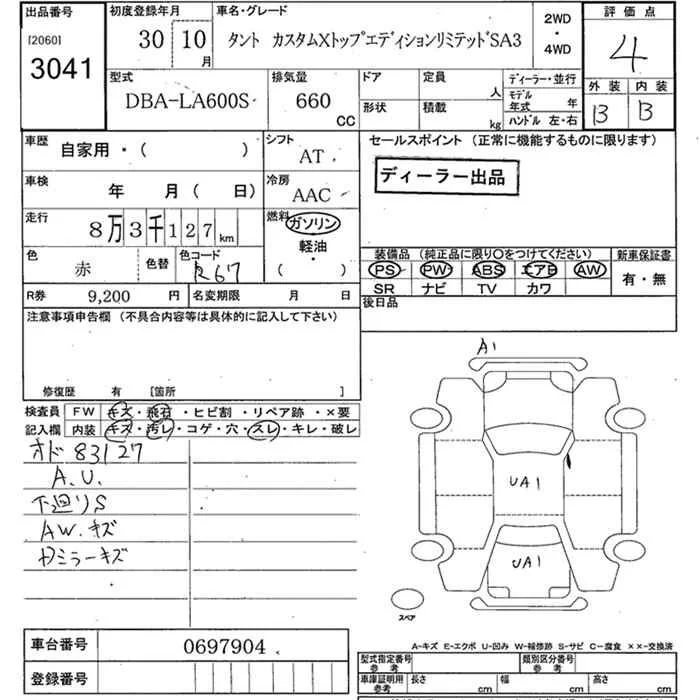 出品番号
[2060]
3041
初度登録年月
30 10
月
車名・グレード
タント カスタムXトップエディションリミテッドSA3
2WD
・
4WD
評価点
4
外装 内装
B B
型式
DBA-LA600S
排気量
660
CC
ドア
形状
定員
人
積載
kg
ディーラー・並行
モデル
年式 年
ハンドル 左・右
車歴
自家用・( )
シフト
AT
車検
年 月( 日)
冷房
AAC
走行
8万3千127km
燃料
ガソリン
軽油・
( )
色
赤
色替
色コード
R67
R券
9,200 円
名変期限 月 日
セールスポイント (正常に機能するものに限ります)
ディーラー出品
装備品 (純正品に限り○をつけてください)
PS PW ABS エアB AW
SR ナビ TV カワ
新車保証書
有・無
後日品
注意事項申告欄 (不具合内容等は具体的に記入して下さい)
修復歴 有 [箇所 ]
検査員
記入欄
FW キズ・飛石・ヒビ割・リペア跡・×要
内装 キズ・汚レ・コゲ・穴・スレ・キレ・破レ
オド83127
A.U.
下廻りS
AW.キズ
Dミラーキズ
A1
UA1
UA1
スペア
A-キズ E-エクボ U-凹み W-補修跡 S-サビ C-腐食 ××-交換済
車台番号
0697904
登録番号
型式指定番号
参考
類別区分番号
参考
車庫証明用
参考
長さ cm
幅 cm
高さ cm